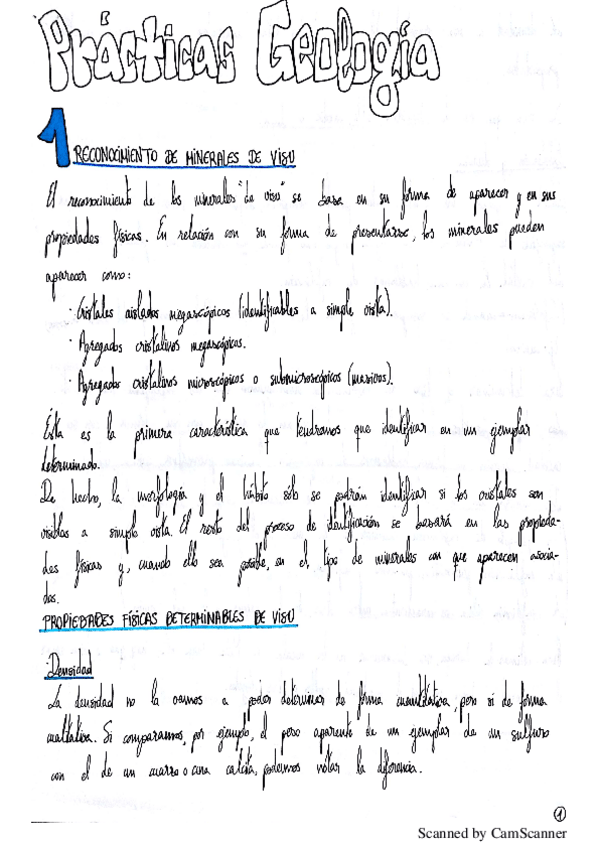 Prácticas Geología
1 RECONOCIMIENTO DE MINERALES DE VISU
El reconocimiento de los minerales "de visu" se basa en su forma de aparecer y en sus
propiedades físicas. En relación con su forma de presentarse, los minerales pueden
aparecer como:
· Cristales aislados megascópicos (identificables a simple vista).
· Agregados cristalinos megascópicos.
· Agregados cristalinos microscópicos o submicroscópicos (masivos).
Ésta es la primera característica que tendramos que identificar en un ejemplar
determinado.
De hecho, la morfología y el hábito sólo se podrán identificar si los cristales son
visibles a simple vista. El resto del proceso de identificación se basará en las propieda-
des físicas y, cuando ello sea posible, en el tipo de minerales con que aparecen asocia-
dos.
PROPIEDADES FÍSICAS DETERMINABLES DE VISU
· Densidad
La densidad no la vamos a poder determinar de forma cuantitativa, pero si de forma
cualitativa. Si comparamos, por ejemplo, el peso aparente de un ejemplar de un sulfuro
con el de un cuarzo o una calcita, podemos notar la diferencia.
1
Scanned by CamScanner